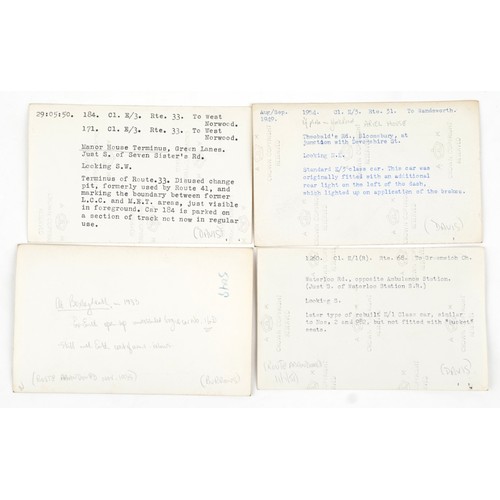 29:05:50. 184. Cl. E/3. Rte. 33. To West
Norwood.
171. Cl. E/3. Rte. 33. To West
Norwood.
Manor House Terminus, Green Lanes.
Just S. of Seven Sister's Rd.
Looking S.W.
Terminus of Route.33. Disused change
pit, formerly used by Route 41, and
marking the boundary between former
L.C.C. and M.E.T. areas, just visible
in foreground. Car 184 is parked on
a section of track not now in regular
use.
(DAVIS)
Aug/Sep. 1904. Cl. E/3. Rte. 31. To Wandsworth.
1949.
Theobald's Rd., Bloomsbury, at
junction with Devonshire St.
Looking S.E.
Standard E/3 class car. This car was
originally fitted with an additional
rear light on the left of the dash,
which lighted up on application of the brakes.
(DAVIS)
in 1933
(ROUTE ABANDONED NOV. 1933)
(BURROWS)
1260. Cl. E/1(R). Rte. 68. To Greenwich Ch.
Waterloo Rd., opposite Ambulance Station.
(Just S. of Waterloo Station S.R.)
Looking S.
Later type of rebuilt E/1 Class car, similar
to Nos. 2 and 982, but not fitted with "bucket"
seats.
(ROUTE ABANDONED)
(DAVIS)